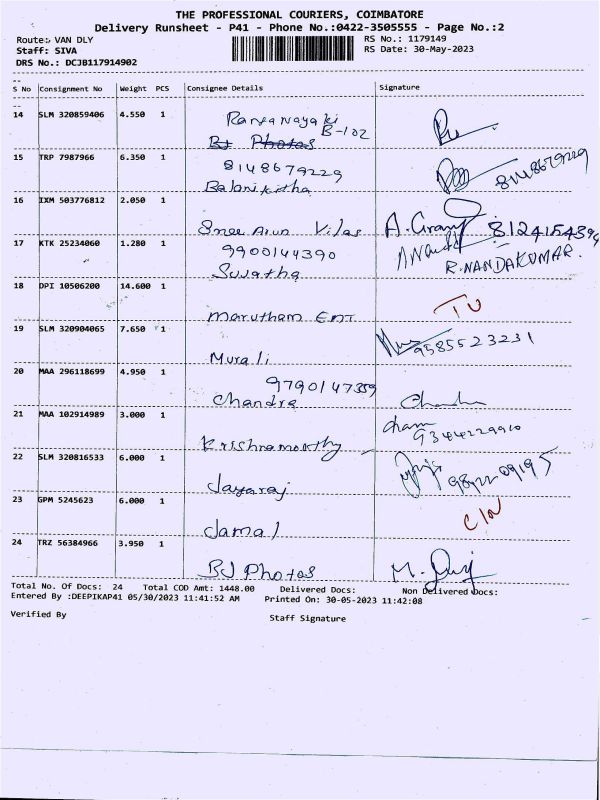 THE PROFESSIONAL COURIERS, COIMBATORE
Delivery Runsheet - P41 - Phone No.:0422-3505555 - Page No.:2
Route: VAN DLY
RS No.: 1179149
Staff: SIVA
RS Date: 30-May-2023
DRS No.: DCJB117914902
S No Consignment No Weight PCS Consignee Details Signature
14 SLM 320859406 4.550 1 B-102
BJ Photos
15 TRP 7987966 6.350 1 8148679229 8148679229
16 IXM 503776812 2.050 1 Sree Arun Vilas 8124154394
17 KTK 25234060 1.280 1 9900144390 R.NANDAKUMAR.
Sujatha
18 DPI 10506200 14.600 1 Marutham ENT
19 SLM 320904065 7.650 1 Murali 9585523231
20 MAA 296118699 4.950 1 9790147359
Chandra
21 MAA 102914989 3.000 1 Krishnamorthy 9344229910
22 SLM 320816533 6.000 1 Jayaraj
23 GPM 5245623 6.000 1 Jamal
24 TRZ 56384966 3.950 1 BJ Photos
Total No. Of Docs: 24 Total COD Amt: 1448.00 Delivered Docs: Non Delivered Docs:
Entered By :DEEPIKAP41 05/30/2023 11:41:52 AM Printed On: 30-05-2023 11:42:08
Verified By
Staff Signature